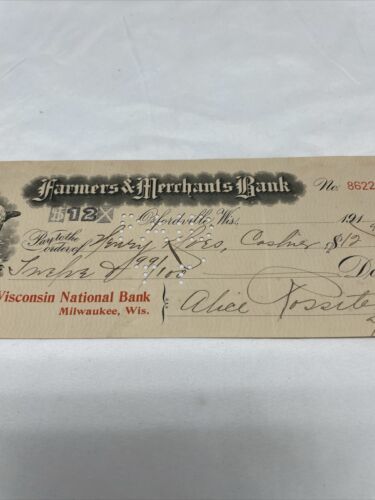 Farmers & Merchants Bank
No. 8622
$12
Orfordville, Wis. 191
Pay to the order of Henry Cashier $12
Twelve & 99/100 Do
Wisconsin National Bank
Milwaukee, Wis.
Alice Rossite